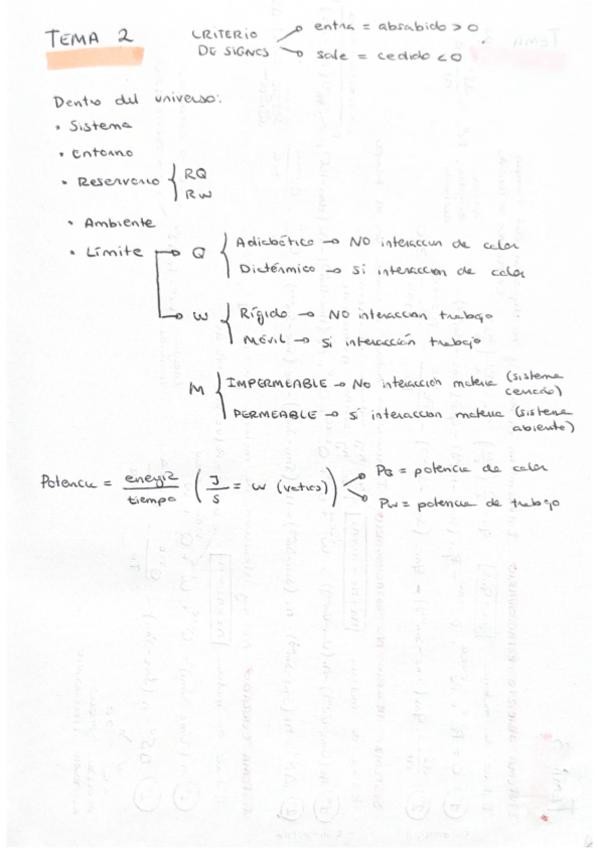 TEMA 2
CRITERIO DE SIGNOS
entra = absorbido > 0
sale = cedido < 0
Dentro del universo:
• Sistema
• Entorno
• Reservorio { RQ
RW
• Ambiente
• Límite → Q { Adiabático → NO interaccion de calor
Diatérmico → si interaccion de calor
→ W { Rígido → NO interaccion trabajo
Móvil → si interacción trabajo
M { IMPERMEABLE → No interacción materia (sistema cerrado)
PERMEABLE → sí interaccion materia (sistema abierto)
Potencia = energía / tiempo ( J / s = W (vatios) )
PQ = potencia de calor
PW = potencia de trabajo